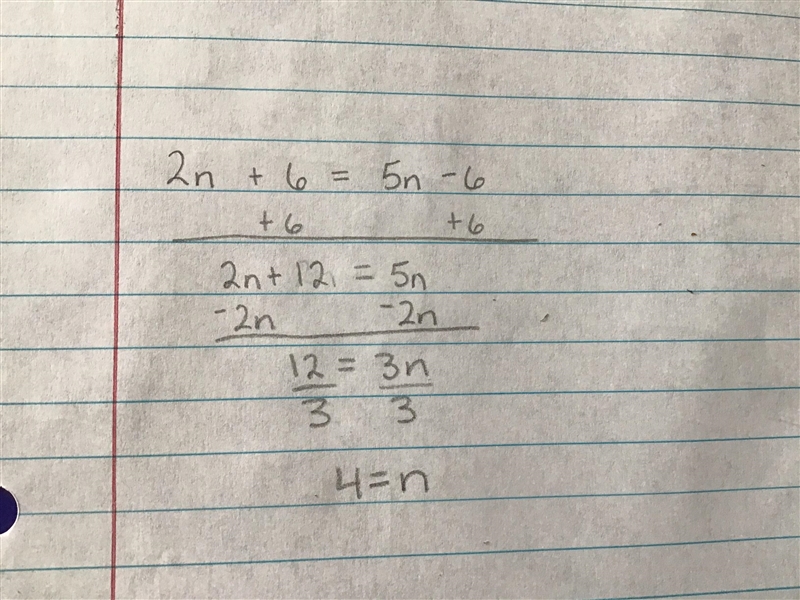 2n + 6 = 5n - 6
+6 +6
2n + 12 = 5n
-2n -2n
12 = 3n
3 3
4 = n